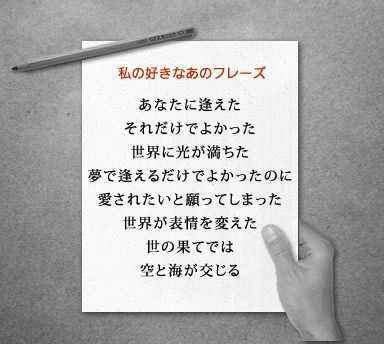 私の好きなあのフレーズ
あなたに逢えた
それだけでよかった
世界に光が満ちた
夢で逢えるだけでよかったのに
愛されたいと願ってしまった
世界が表情を変えた
世の果てでは
空と海が交じる